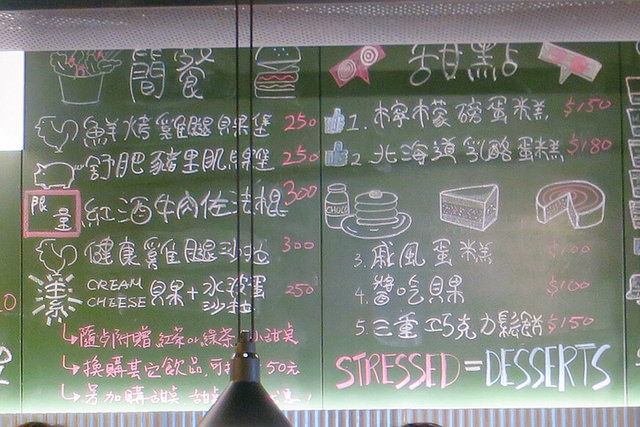 簡餐
鮮烤雞腿貝果堡 250
舒肥豬里肌貝果堡 250
限量 紅酒牛肉佐法棍 300
健康雞腿沙拉 300
素 CREAM CHEESE 貝果+水波蛋沙拉 250
隨點附贈 紅茶or綠茶 小甜點
換購其它飲品,可 50元
另加購甜點,
甜點
1. 檸檬磅蛋糕 $150
2. 北海道乳酪蛋糕 $180
3. 戚風蛋糕 $100
4. 醬吃貝果 $100
5. 三重巧克力鬆餅 $150
STRESSED = DESSERTS
CHOCO